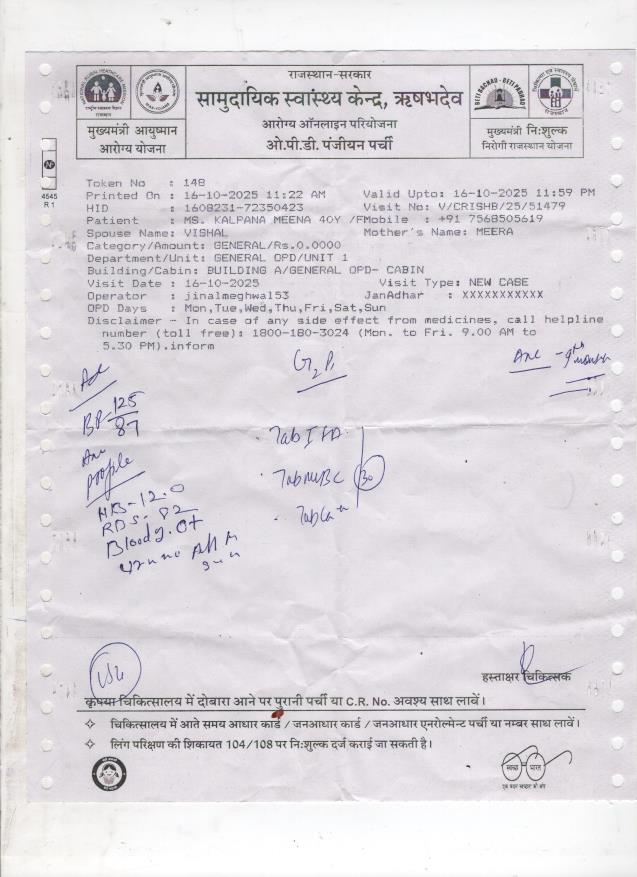 राजस्थान-सरकार
सामुदायिक स्वास्थ्य केन्द्र, ऋषभदेव
आरोग्य ऑनलाइन परियोजना
ओ.पी.डी. पंजीयन पर्ची
मुख्यमंत्री आयुष्मान
आरोग्य योजना
BETI BACHAO - BETI PADHAO
मुख्यमंत्री निःशुल्क
निरोगी राजस्थान योजना
4545
R 1
Token No : 148
Printed On : 16-10-2025 11:22 AM Valid Upto: 16-10-2025 11:59 PM
HID : 1608231-72350423 Visit No: V/CRISHB/25/51479
Patient : MS. KALPANA MEENA 40Y /FMobile : +91 7568505619
Spouse Name: VISHAL Mother's Name: MEERA
Category/Amount: GENERAL/Rs.0.0000
Department/Unit: GENERAL OPD/UNIT 1
Building/Cabin: BUILDING A/GENERAL OPD- CABIN
Visit Date : 16-10-2025 Visit Type: NEW CASE
Operator : jinalmeghwal53 JanAdhar : XXXXXXXXXXX
OPD Days : Mon,Tue,Wed,Thu,Fri,Sat,Sun
Disclaimer - In case of any side effect from medicines, call helpline
number (toll free): 1800-180-3024 (Mon. to Fri. 9.00 AM to
5.30 PM).inform
G2P1
Anc - 9th month
BP - 125/87
Tab IFA
Anc
Tab MVBC
30
Tab Ca
HB - 12.0
RBS - 82
Blood g. O+
हस्ताक्षर चिकित्सक
कृपया चिकित्सालय में दोबारा आने पर पुरानी पर्ची या C.R. No. अवश्य साथ लावें।
चिकित्सालय में आते समय आधार कार्ड / जनआधार कार्ड / जनआधार एनरोल्मेन्ट पर्ची या नम्बर साथ लावें।
लिंग परिक्षण की शिकायत 104/108 पर निःशुल्क दर्ज कराई जा सकती है।
स्वच्छ भारत
एक कदम स्वच्छता की ओर